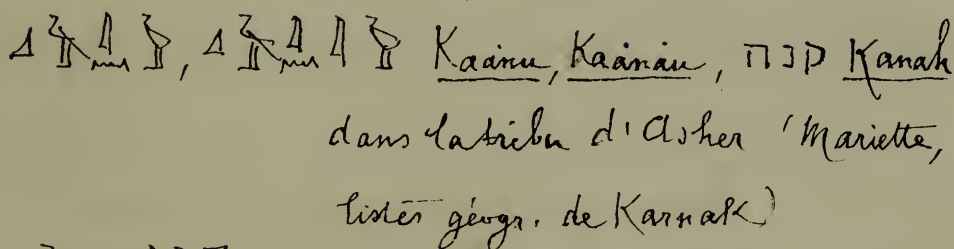 Kaánu, Kaánáu, קנה Kanah
dans la tribu d'Asher (Mariette,
listes géogr. de Karnak)